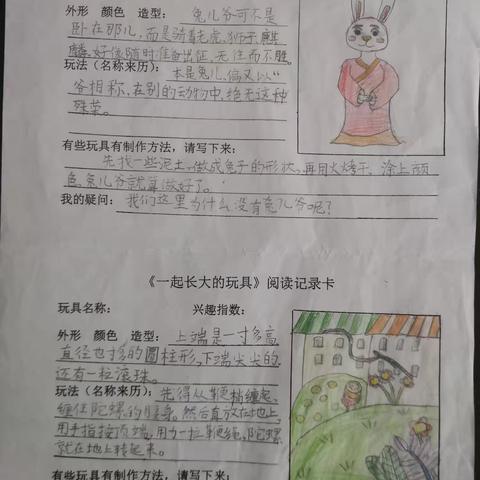 外形 颜色 造型： 兔儿爷可不是
卧在那儿，而是骑着老虎、狮子、麒
麟，好像随时准备出征，无往而不胜。
玩法（名称来历）： 本是兔儿，偏又以“
爷相称，在别的动物中，绝无这种
殊荣。
有些玩具有制作方法，请写下来：
先找一些泥土，做成兔子的形状，再用火烤干，涂上颜
色，兔儿爷就算做好了。
我的疑问： 我们这里为什么没有兔儿爷呢？
《一起长大的玩具》阅读记录卡
玩具名称： 兴趣指数：
外形 颜色 造型： 上端是一寸多高，
直径也寸多的圆柱形，下端尖尖的，
还有一粒滚珠。
玩法（名称来历）： 先得从鞭梢缠起，
缠住陀螺的腰身。然后直放在地上，
用手指按顶端，用力一拉鞭绳，陀螺
就在地上转起来。
有些玩具有制作方法，请写下来：